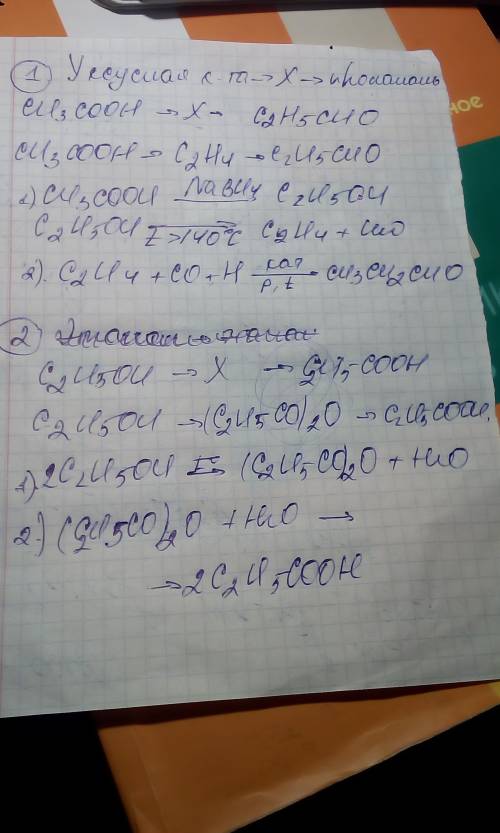 1 Уксусная к-та → X → пропаналь
CH3COOH → X → C2H5CHO
CH3COOH → C2H4 → C2H5CHO
1) CH3COOH NaBH4 C2H5OH
C2H5OH t>140°C C2H4 + H2O
2). C2H4 + CO + H кат p,t CH3CH2CHO
2
C2H5OH → X → C2H5-COOH
C2H5OH → (C2H5CO)2O → C2H5COOH.
1) 2C2H5OH t→ (C2H5CO)2O + H2O
2.) (C2H5CO)2O + H2O →
→ 2C2H5COOH
ное